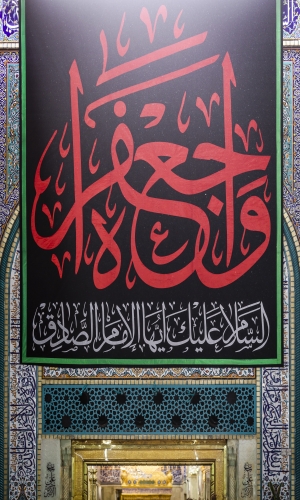 واجعفراه
السلام عليك ايها الإمام الصادق